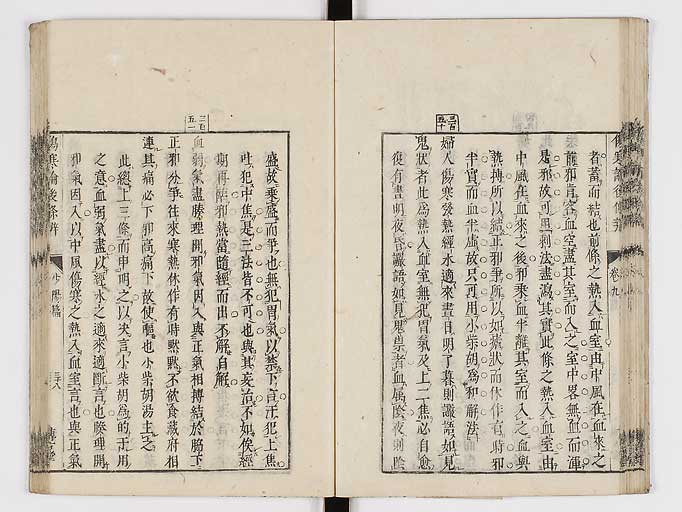 三百五十
者蓄而結也前條之熱入血室由中風在血來之
是邪故可用刺法盡瀉其實此條之熱入血室由
中風在血來之後邪乘血半離其室而入之血與
熱摶所以結正邪爭所以如瘧狀而休作有時邪
半實而血半虛故只可用小柴胡為和解法
婦人傷寒發熱經水適來晝日明了暮則譫語如見
鬼狀者此為熱入血室無犯胃氣及上二焦必自愈
復有晝明夜昏譫語如見鬼祟者血屬陰夜則陰
卷九
三百五一
盛故乘盛而爭也無犯胃氣以禁下言汗犯上焦
吐犯中焦是三法皆不可也與其妄治不如俟經
期再臨邪熱當隨經而出不解自解
血弱氣盡腠理開邪氣因入與正氣相摶結於脇下
正邪分爭往來寒熱休作有時默默不欲食藏府相
連其痛必下邪高痛下故使嘔也小柴胡湯主之
此總上三條而申明之以決言小柴胡為的于用
之意血弱氣盡以經水之適來適斷言也腠理開
邪氣因入以中風傷寒之熱入血室言也與正氣
傷寒論後條辨
少陽篇